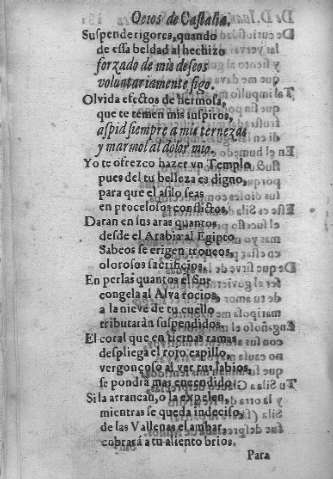 Ocios de Castalia,
Suspende rigores, quando
de essa beldad al hechizo
forzado de mis deseos
voluntariamente sigo.
Olvida efectos de hermosa,
que te temen mis suspiros,
aspid siempre a mis ternezas
y marmol al dolor mio.
Yo te ofrezco hazer vn Templo
pues del tu belleza es digno,
para que el asilo seas
en procelosos conflictos,
Daran en sus aras quantos
desde el Arabia al Egipto
Sabeos se erigen troncos,
olorosos sacrificios.
En perlas quantos el Sur
congela al Alva rocios,
a la nieve de tu cuello
tributarán suspendidos.
El coral que en tiernas ramas
despliega el roxo capillo,
vergonçoso al ver tus labios,
se pondrá mas encendido.
Si la arrancan, o la expelen,
mientras se queda indeciso,
de las Vallenas el ambar,
cobrará a tu aliento brios.
Para